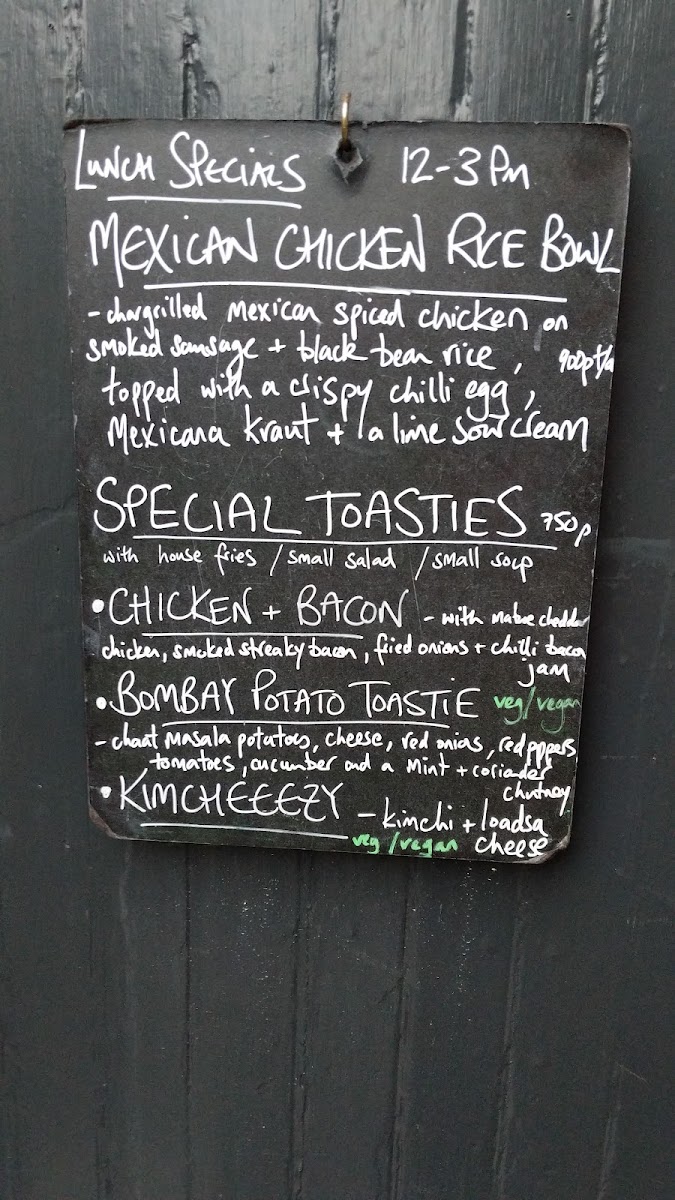 LUNCH SPECIALS 12-3 Pm
MEXICAN CHICKEN RICE BOWL
- chargrilled mexican spiced chicken on
smoked sausage + black bean rice ,
topped with a crispy chilli egg ,
Mexicana kraut + a lime sour cream
SPECIAL TOASTIES 750p
with house fries / small salad / small soup
• CHICKEN + BACON - with mature cheddar
chicken, smoked streaky bacon, fried onions + chilli bacon
jam
• BOMBAY POTATO TOASTIE veg/vegan
- chaat masala potatoes, cheese, red onions, red pppers
tomatoes, cucumber and a mint + coriander
chutney
• KIMCHEEEZY - kimchi + loadsa
veg/vegan cheese